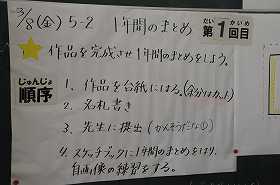 3/8(金) 5-2 1年間のまとめ
だい かいめ
第1回目
作品を完成させ1年間のまとめをしよう。
じゅんじょ
順序
1. 作品を台紙にはる。(余分はカット)
2. 名札書き
3. 先生に提出
4. スケッチブックに1年間のまとめをはり、
自画像の練習をする。